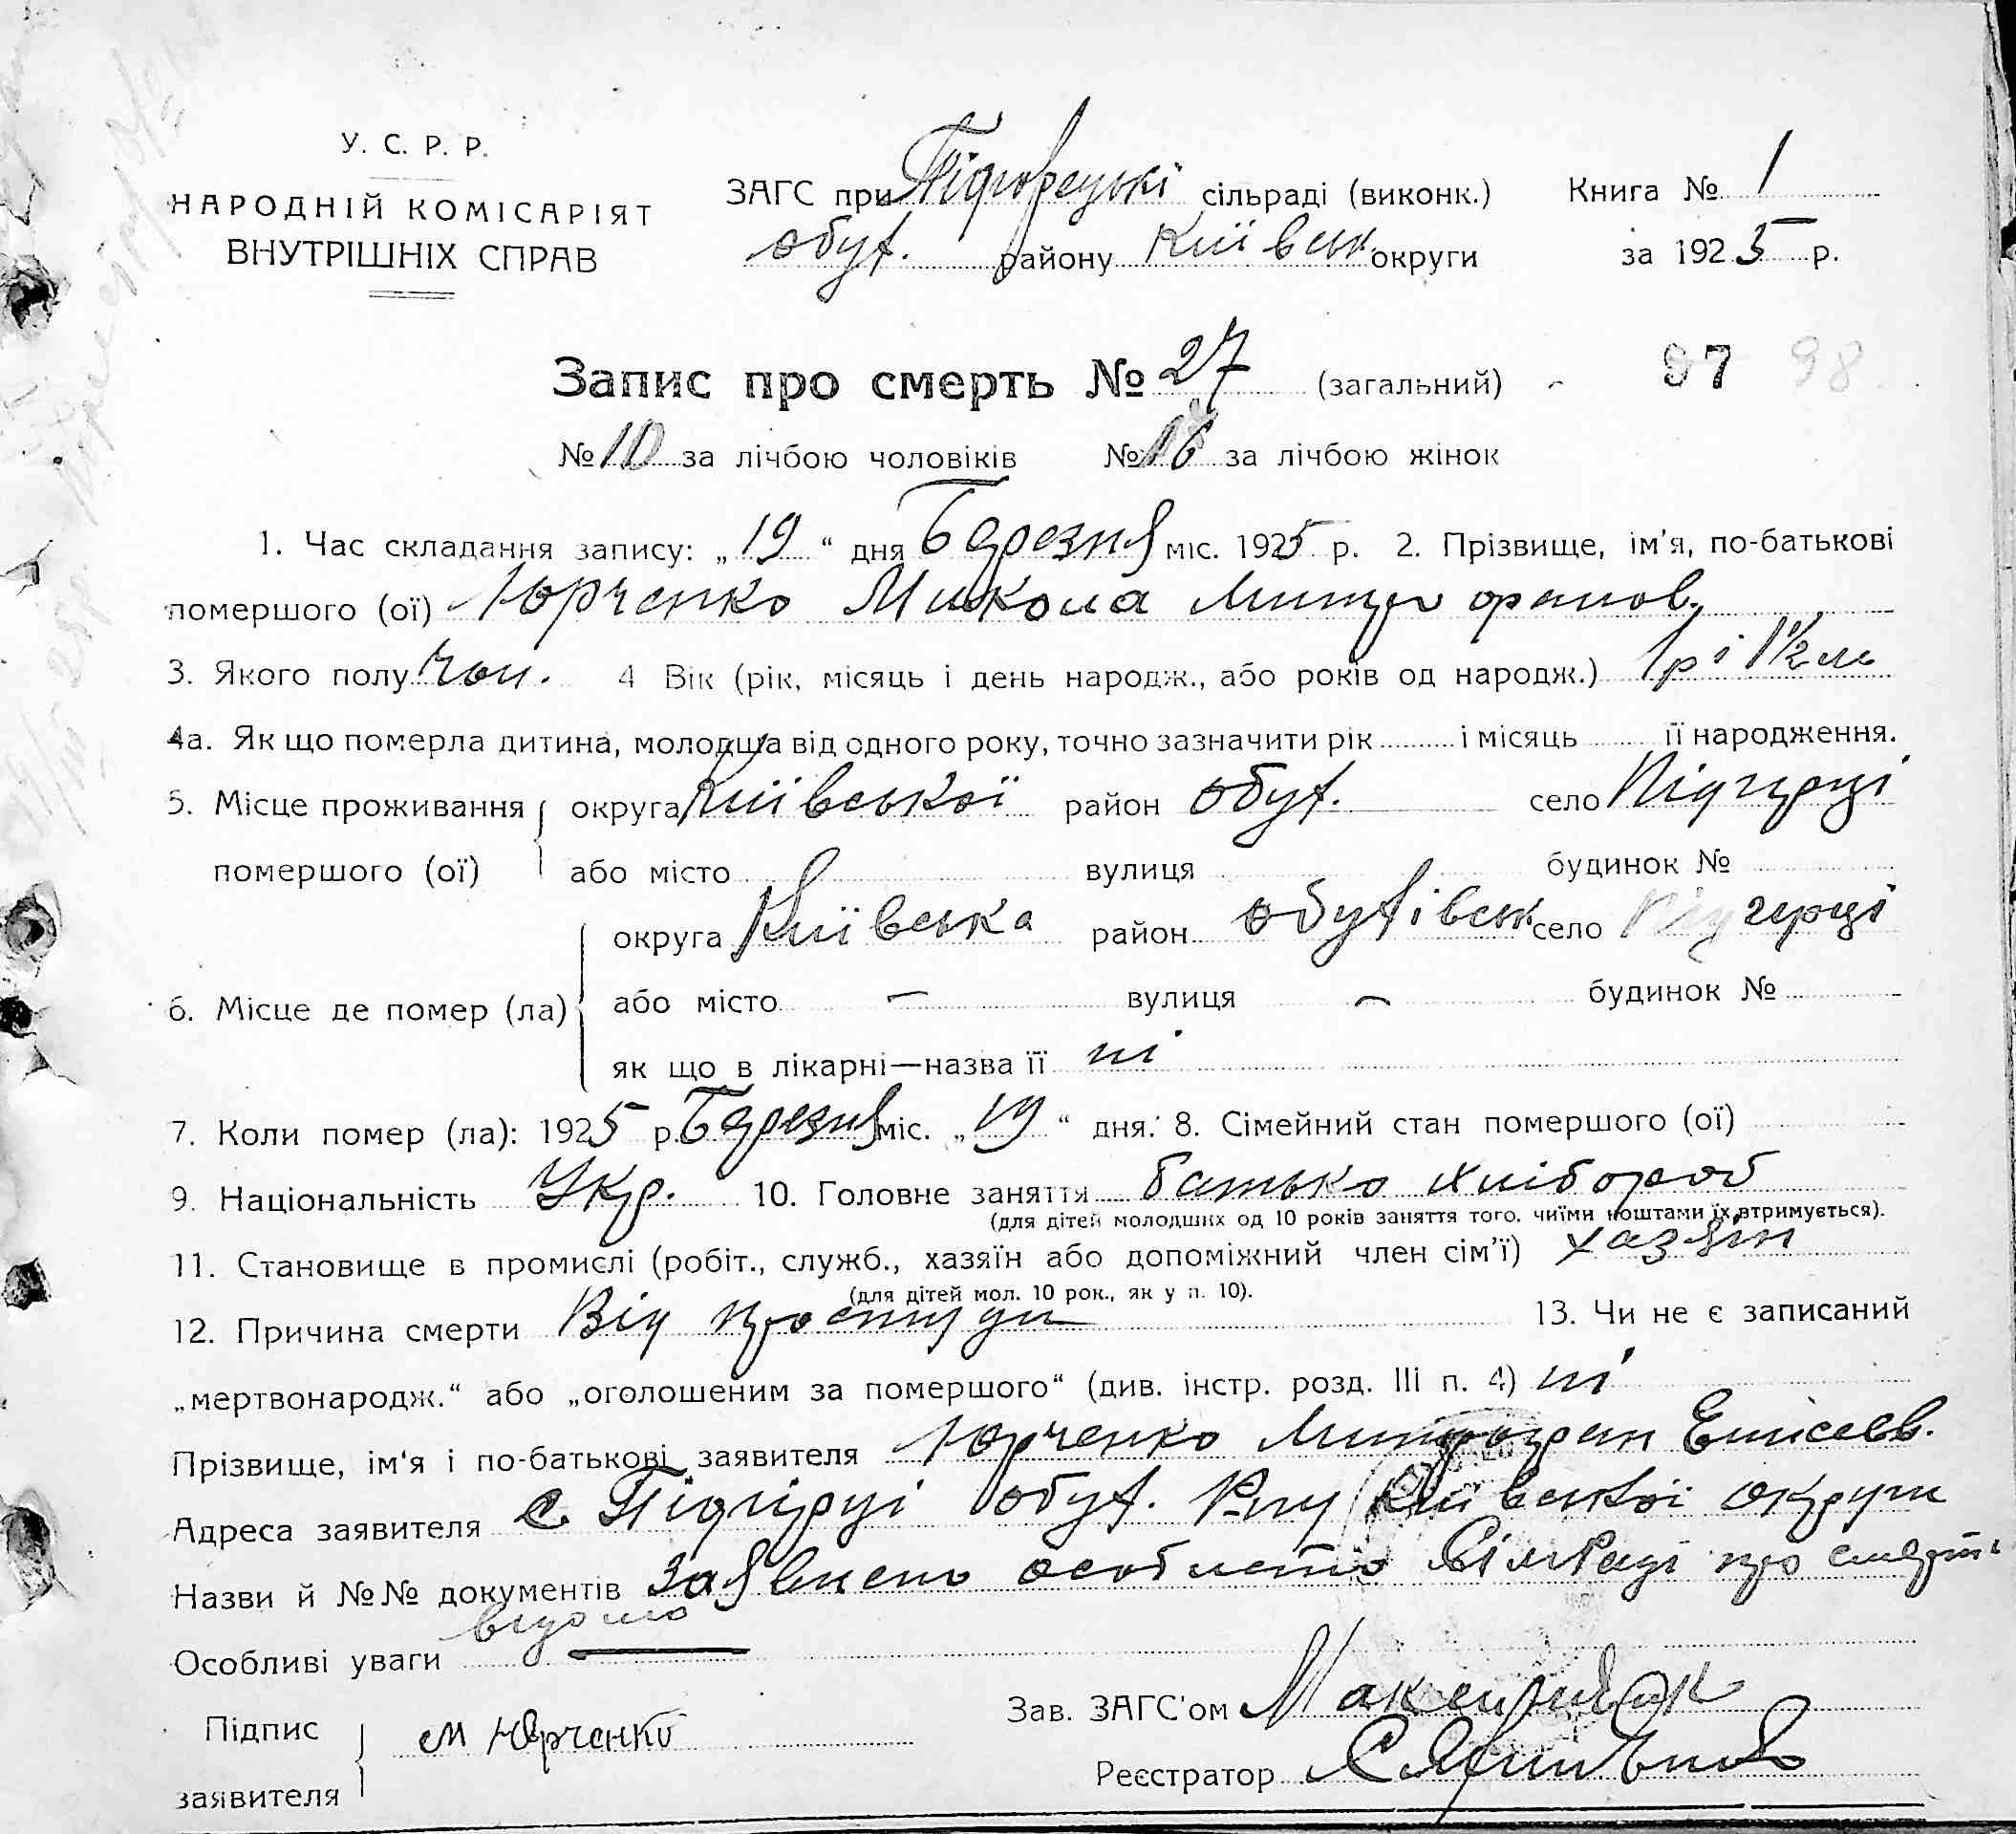 У. С. Р. Р.
НАРОДНІЙ КОМІСАРІЯТ
ВНУТРІШНІХ СПРАВ
ЗАГС при Підгорецькі сільраді (виконк.)
Обух. району Київськ. округи
Книга № 1
за 1925 р.
Запис про смерть № 27 (загальний)
97 98
№ 10 за лічбою чоловіків № 16 за лічбою жінок
1. Час складання запису: „19“ дня Березня міс. 1925 р. 2. Прізвище, ім'я, по-батькові
помершого (ої) Юрченко Микола Митрофанов.
3. Якого полу Чол. 4 Вік (рік, місяць і день народж., або років од народж.) 1 р і 1½ м
4а. Як що померла дитина, молодша від одного року, точно зазначити рік і місяць її народження.
5. Місце проживання округа Київської район Обух. село Підгірці
помершого (ої) або місто вулиця будинок №
округа Київська район Обухівськ село Підгірці
6. Місце де помер (ла) або місто — вулиця — будинок №
як що в лікарні—назва її ні
7. Коли помер (ла): 1925 р. Березня міс. „19“ дня. 8. Сімейний стан помершого (ої)
9. Національність Укр. 10. Головне заняття батько хлібороб
(для дітей молодших од 10 років заняття того, чиїми коштами їх втримується).
11. Становище в промислі (робіт., служб., хазяїн або допоміжний член сім'ї) хазяін
(для дітей мол. 10 рок., як у п. 10).
12. Причина смерти Від простуди 13. Чи не є записаний
„мертвонародж.“ або „оголошеним за помершого“ (див. інстр. розд. III п. 4) ні
Прізвище, ім'я і по-батькові заявителя Юрченко Митрофан Елісеев.
Адреса заявителя с. Підгірці Обух. Р-ну Київської округи
Назви й №№ документів Заявлено особисто Сільраді про смерть
відомо
Особливі уваги —
Підпис
заявителя М Юрченко
Зав. ЗАГС'ом
Реєстратор